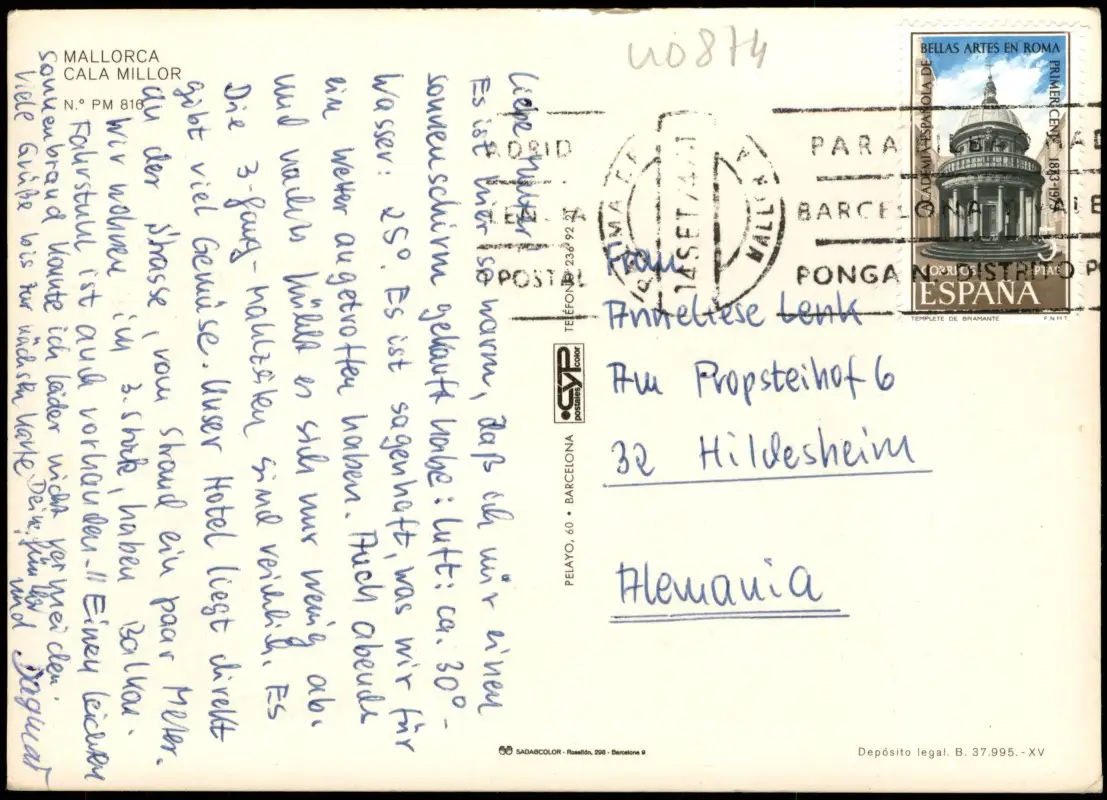 MALLORCA
CALA MILLOR
N.º PM 816
Liebe Mutter!
Es ist hier so warm, daß ich mir einen
Sonnenschirm gekauft habe: Luft: ca. 30° -
Wasser: 25°. Es ist sagenhaft, was wir für
ein Wetter angetroffen haben. Auch abends
und nachts kühlt es sich nur wenig ab.
Die 3-Gang-Mahlzeiten sind reichlich. Es
gibt viel Gemüse. Unser Hotel liegt direkt
an der Strasse, vom Strand ein paar Meter.
Wir wohnen im 3. Stock, haben Balkon.
Fahrstuhl ist auch vorhanden!! Einen leichten
Sonnenbrand konnte ich leider nicht vermeiden.
Viele Grüße bis zur nächsten Karte Deine
und Dagmar
110874
TELÉFONO 236 92 27
CYP
postales color
PELAYO, 60 • BARCELONA
BELLAS ARTES EN ROMA
ACADEMIA ESPAÑOLA DE
PRIMER CENT. 1873-1974
CORREOS
5 PTAS
ESPAÑA
TEMPLETE DE BRAMANTE
F.N.M.T.
PALMA DE MALLORCA
14 SET 74
PARA
BARCELONA
PONGA N. DISTRITO POSTAL
Frau
Anneliese Lenk
Am Propsteihof 6
32 Hildesheim
Alemania
SADAGCOLOR - Rosellón, 298 - Barcelona 9
Depósito legal. B. 37.995. - XV